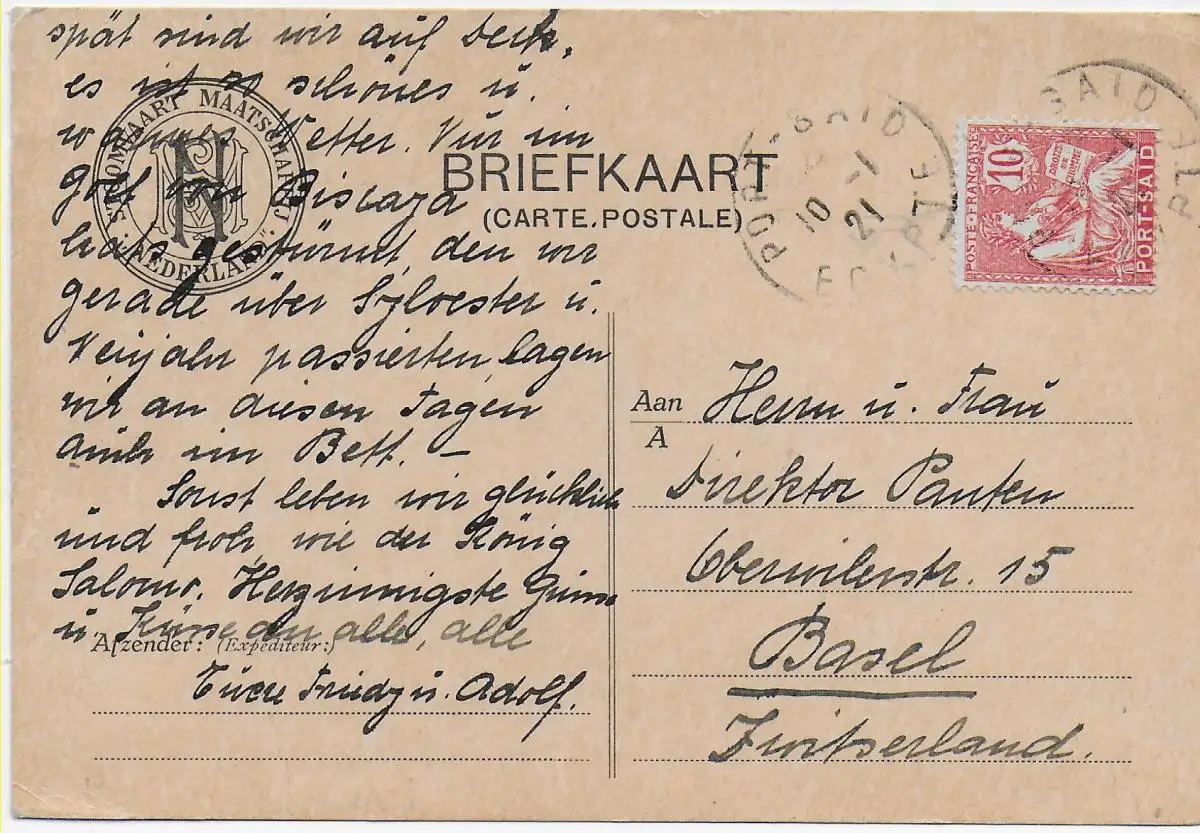 spät sind wir auf Deck,
es ist so schönes u.
warmes Wetter. Nur im
Golf von Biscaya
hats gestürmt, den wir
gerade über Sylvester u.
Neujahr passierten, lagen
wir an diesen Tagen
auch im Bett. –
Sonst leben wir glücklich
und froh, wie der König
Salomo. Herzinnigste Grüsse
u. Küsse an alle, alle
Eure Friedy u. Adolf.
STOOMVAART MAATSCHAPPIJ
"NEDERLAND"
BRIEFKAART
(CARTE.POSTALE)
Afzender: (Expéditeur:)
PORT-SAID
10 -1
21
EGYPTE
SAID
POSTE·FRANÇAISE
10c
DROITS
DE
L'HOMME
PORT-SAID
Aan Herrn u. Frau
A
Direktor Panten
Oberwilerstr. 15
Basel
Zwitserland.